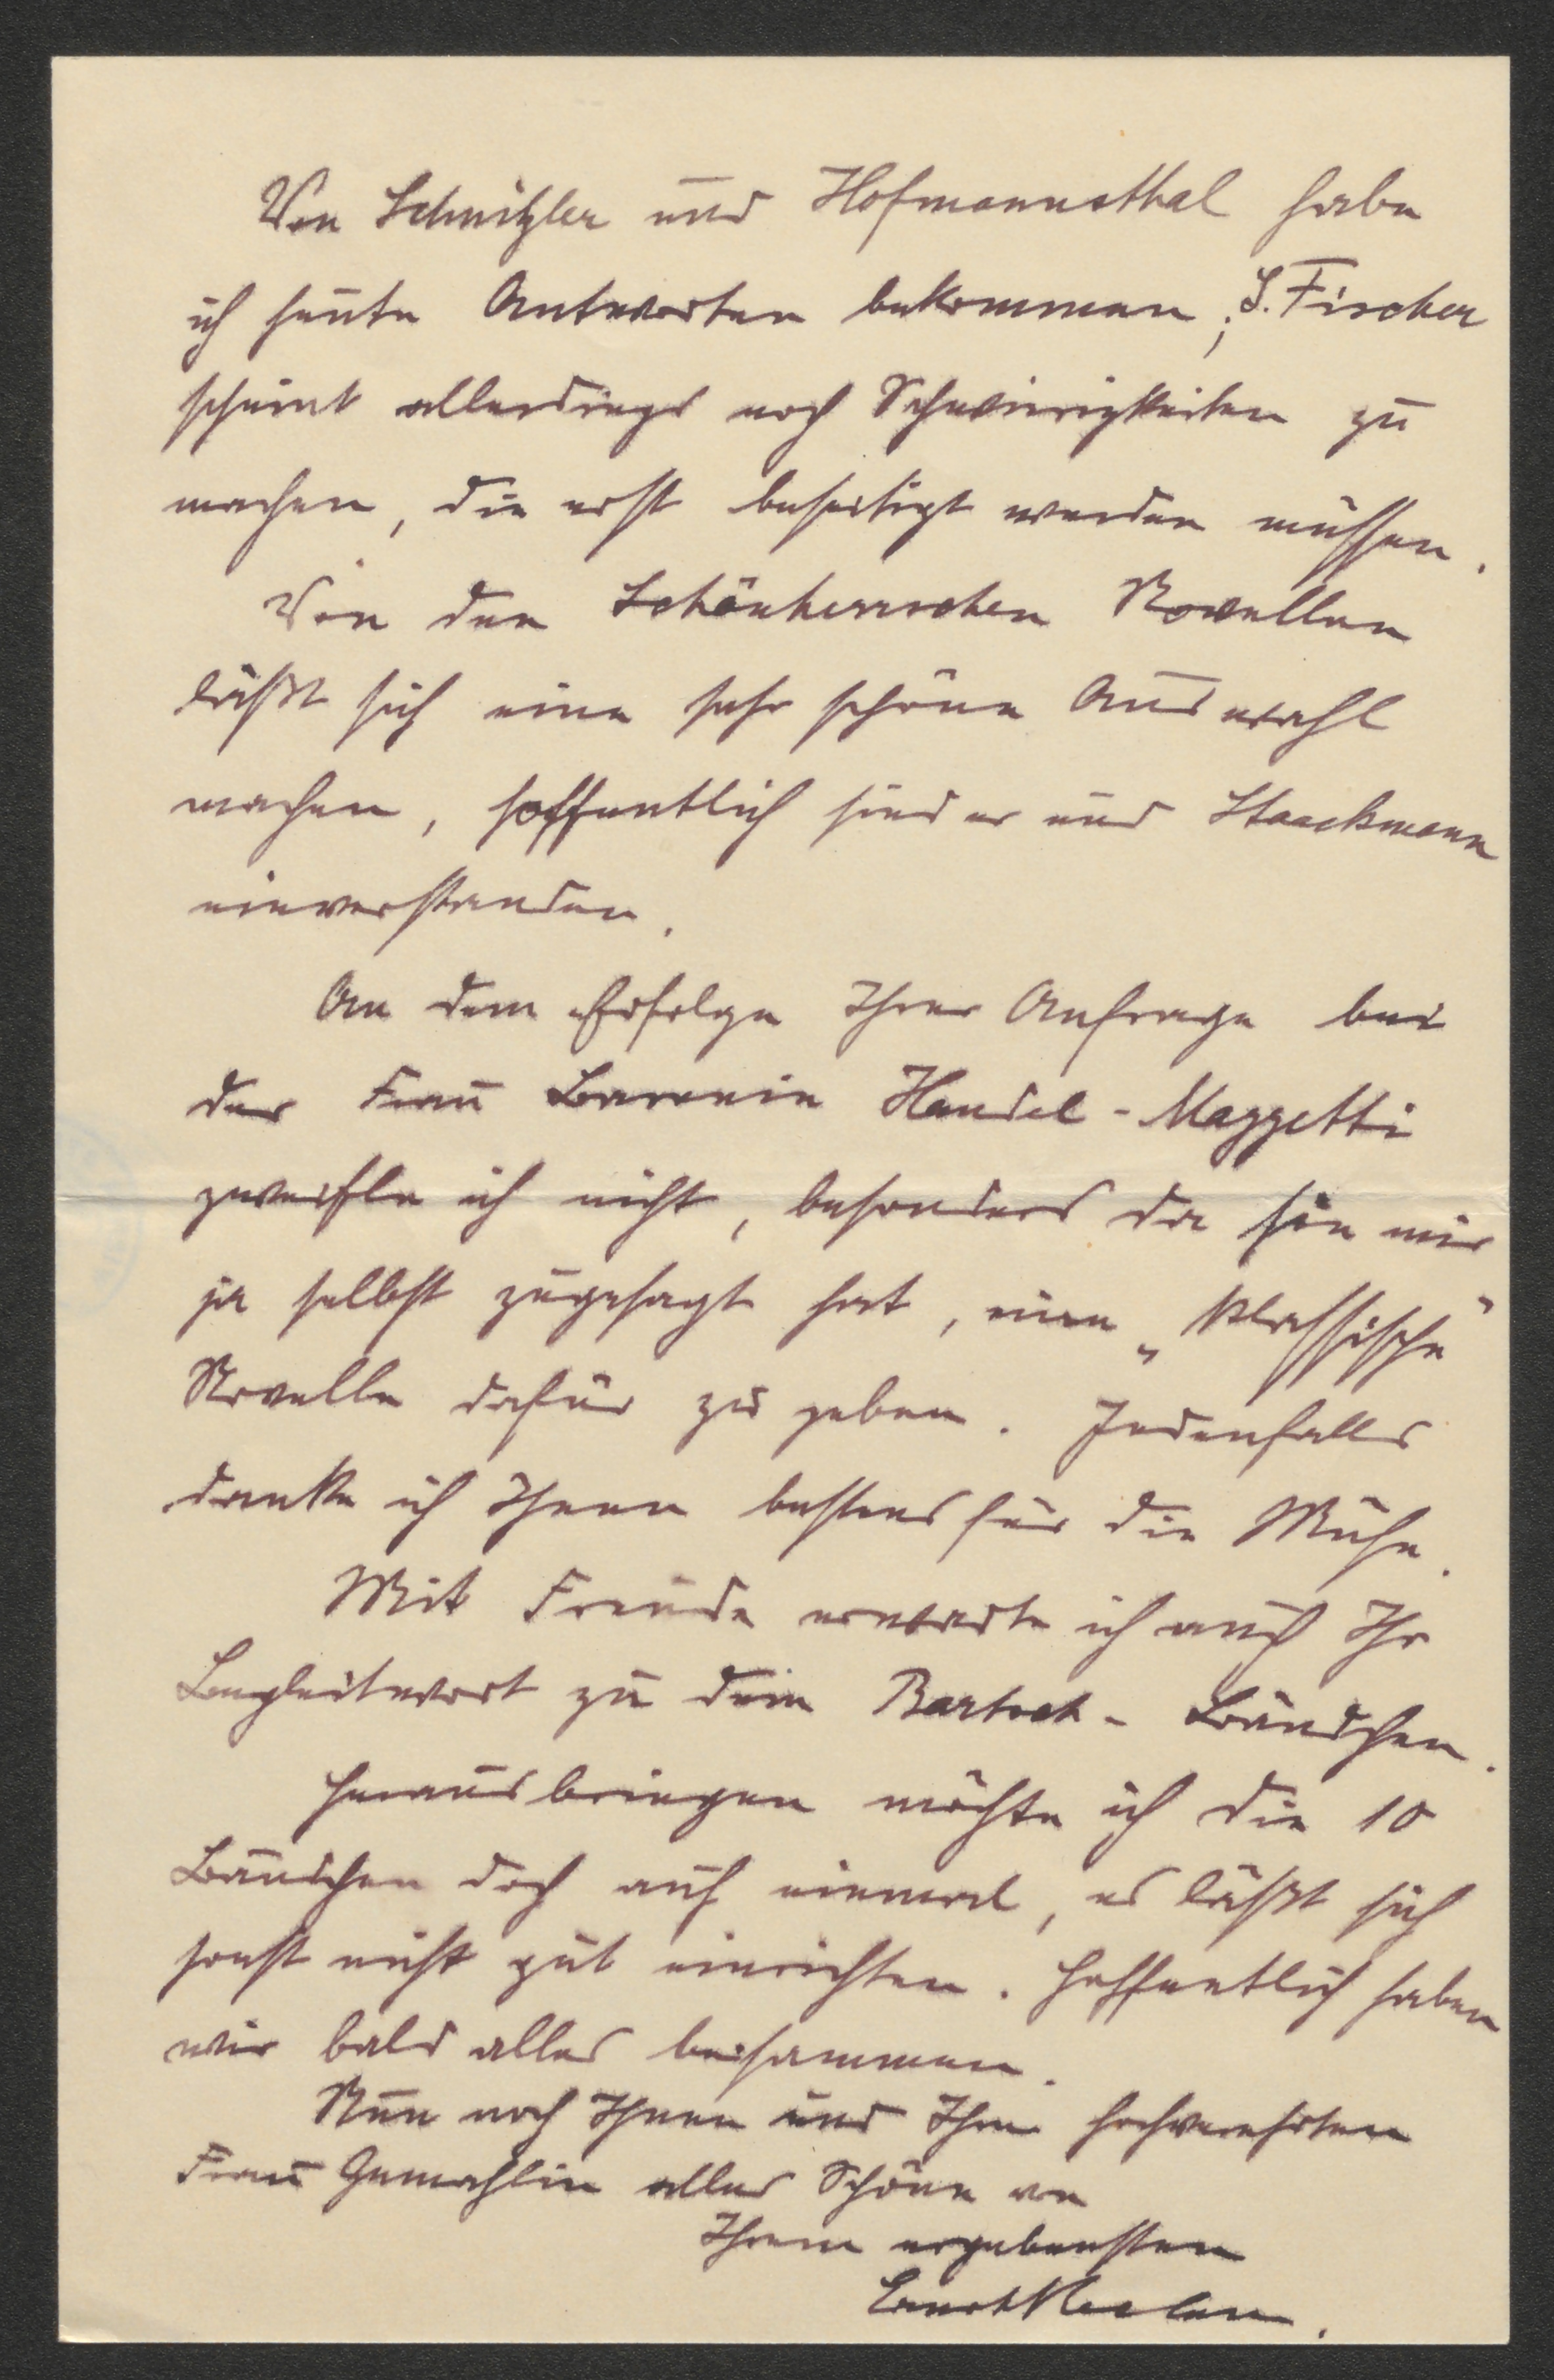 Von Schnitzler und Hofmannsthal habe
ich heute Antworten bekommen; S. Fischer
scheint allerdings noch Schwierigkeiten zu
machen, die erst beseitigt werden müssen.
Von den Schönherrschen Novellen
läßt sich eine sehr schöne Auswahl
machen, hoffentlich sind er und Staackmann
einverstanden.
An dem Erfolge Ihrer Anfrage bei
der Frau Baronin Handel-Mazzetti
zweifle ich nicht, besonders da sie mir
ja selbst zugesagt hat, eine „klassische"
Novelle dafür zu geben. Jedenfalls
danke ich Ihnen bestens für die Mühe.
Mit Freude erwarte ich auch Ihr
Begleitwort zu dem Bartsch-Bändchen.
Herausbringen möchte ich die 10
Bändchen doch auf einmal, es läßt sich
sonst nicht gut einrichten. Hoffentlich haben
wir bald alles beisammen.
Nun noch Ihnen und Ihrer hochverehrten
Frau Gemahlin alles Schöne von
Ihrem ergebensten
Ernst